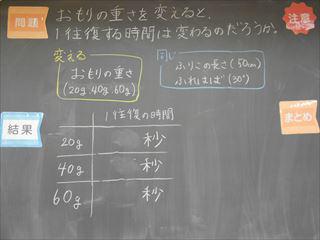 問題
おもりの重さを変えると、
1往復する時間は変わるのだろうか。
注意
変える
おもりの重さ
(20g.40g.60g)
同じ
ふりこの長さ(50cm)
ふれはば(30°)
結果
1往復の時間
20g 秒
40g 秒
60g 秒
まとめ